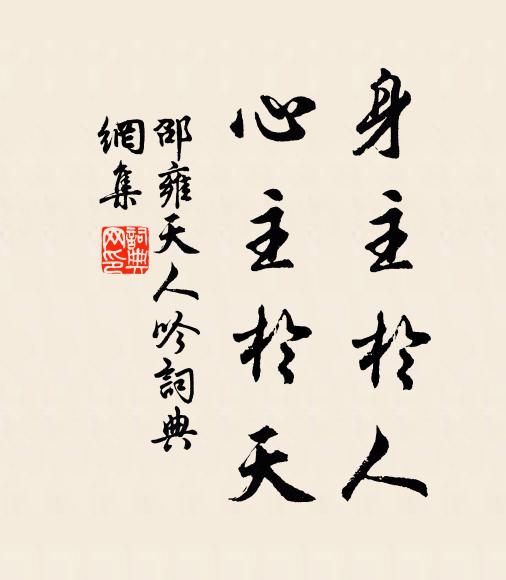 身主於人
心主於天
邵雍天人吟詞典
網集
詞典
网印